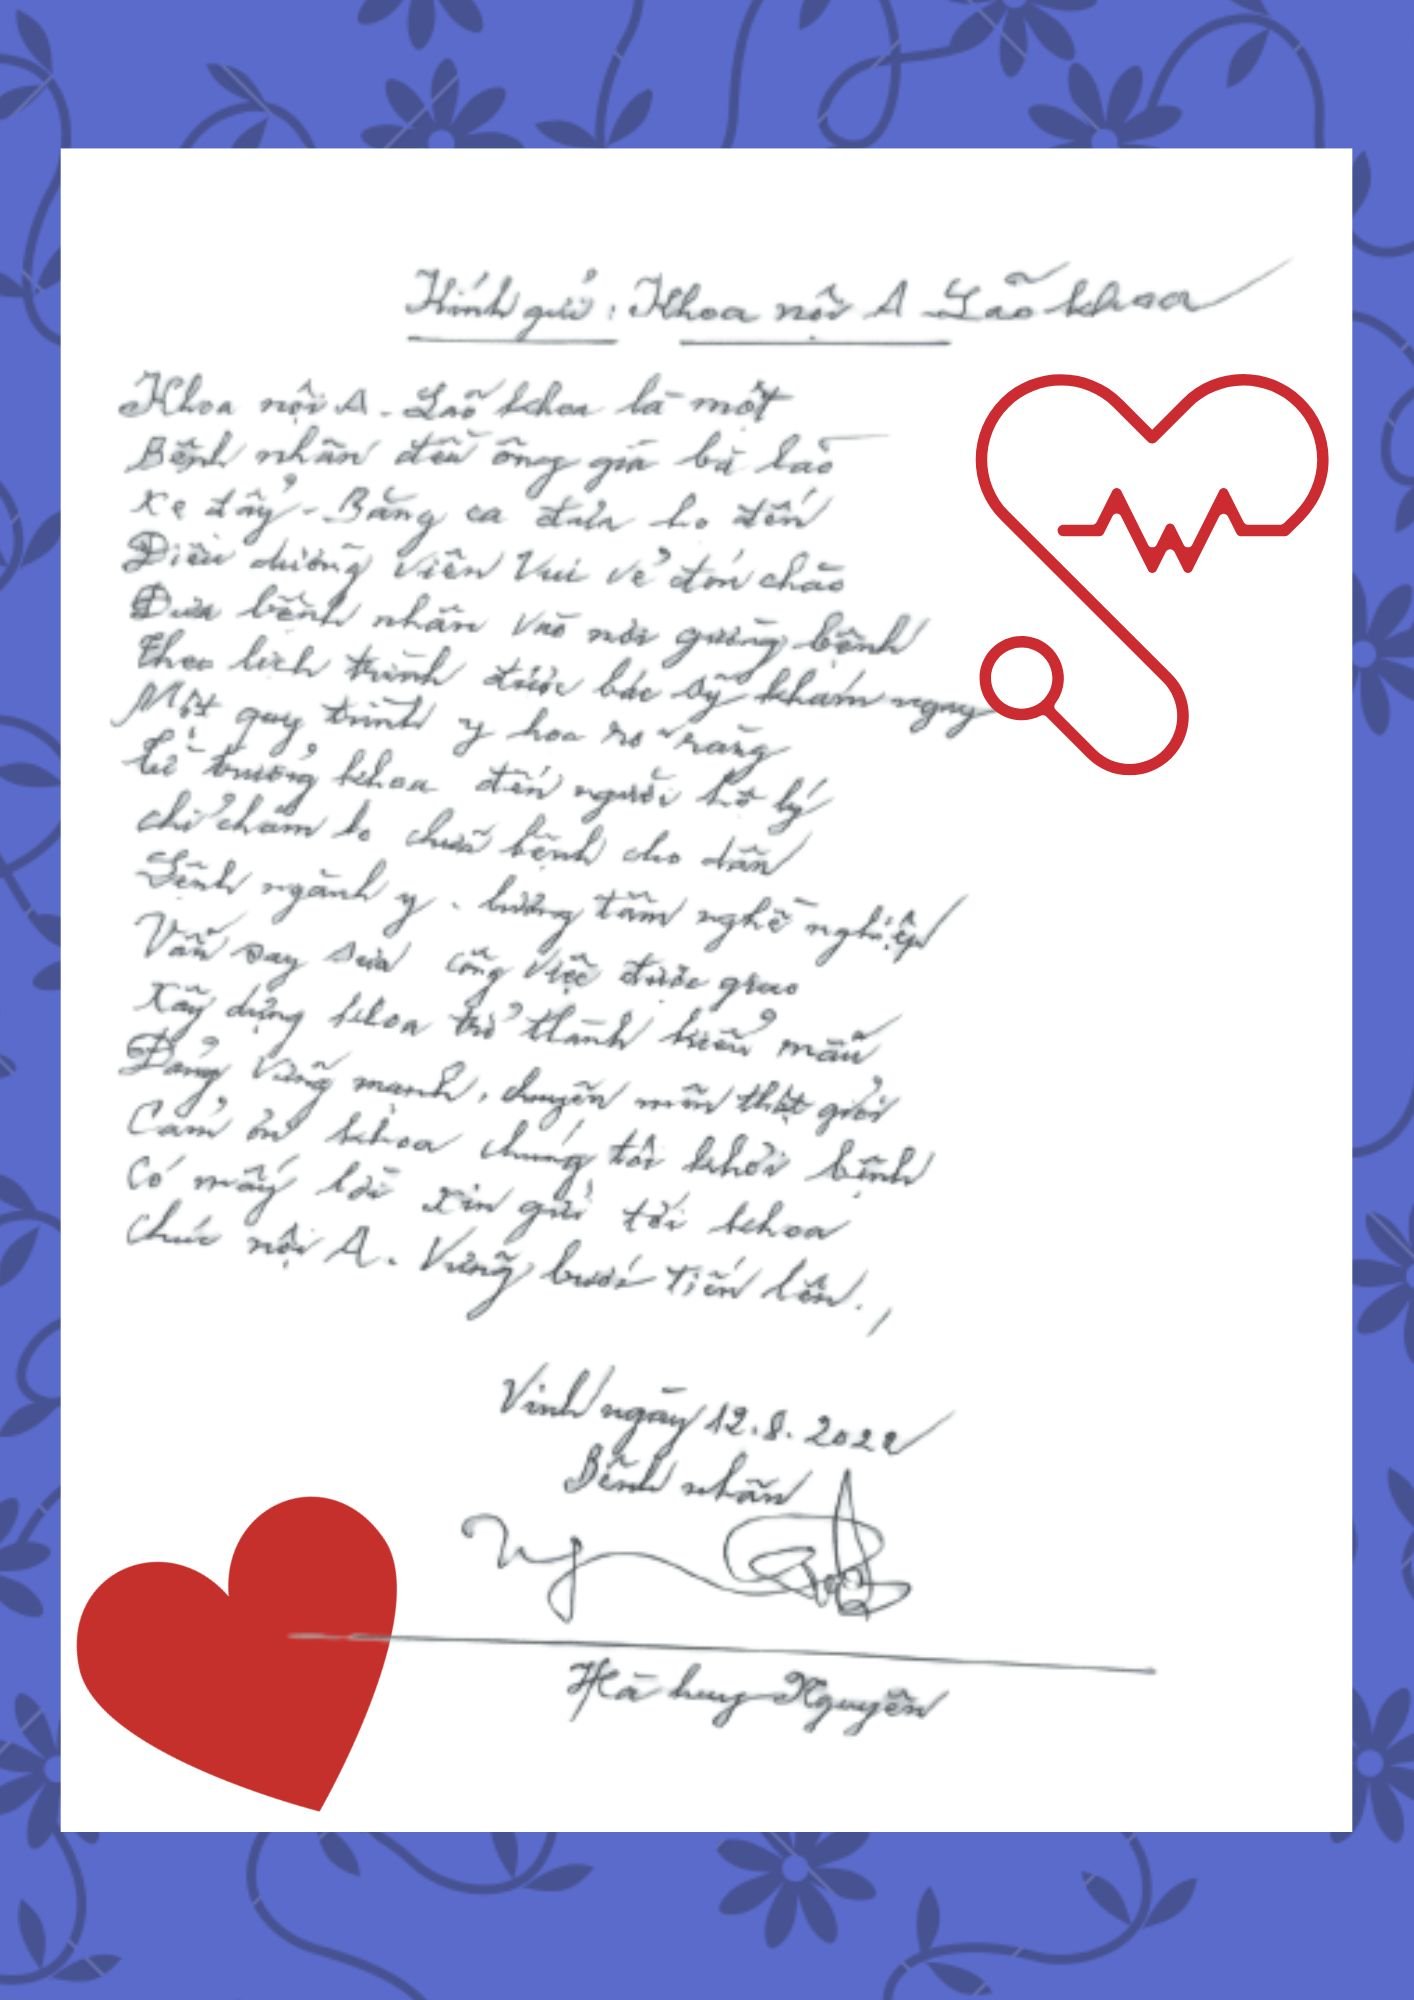 Kính gửi: Khoa nội A Lão khoa
Khoa nội A - Lão khoa là một
Bệnh nhân đều ông già bà lão
Xe đẩy - Băng ca đưa họ đến
Điều dưỡng viên Vui vẻ đón chào
Đưa bệnh nhân vào nơi giường bệnh
Theo lịch trình được bác sỹ khám ngay
Một quy trình y hoa rõ ràng
từ trưởng khoa đến người hộ lý
chỉ chăm lo chữa bệnh cho dân
Lệnh ngành y - lương tâm nghề nghiệp
Vẫn say sưa công việc được giao
Xây dựng khoa trở thành kiểu mẫu
Đảng Vững mạnh, chuyên môn thật giỏi
Cảm ơn khoa chúng tôi khỏi bệnh
Có mấy lời xin gửi tới khoa
chúc nội A. Vững bước tiến lên.
Vinh ngày 12.8.2022
Bệnh nhân
Hà huy Nguyên